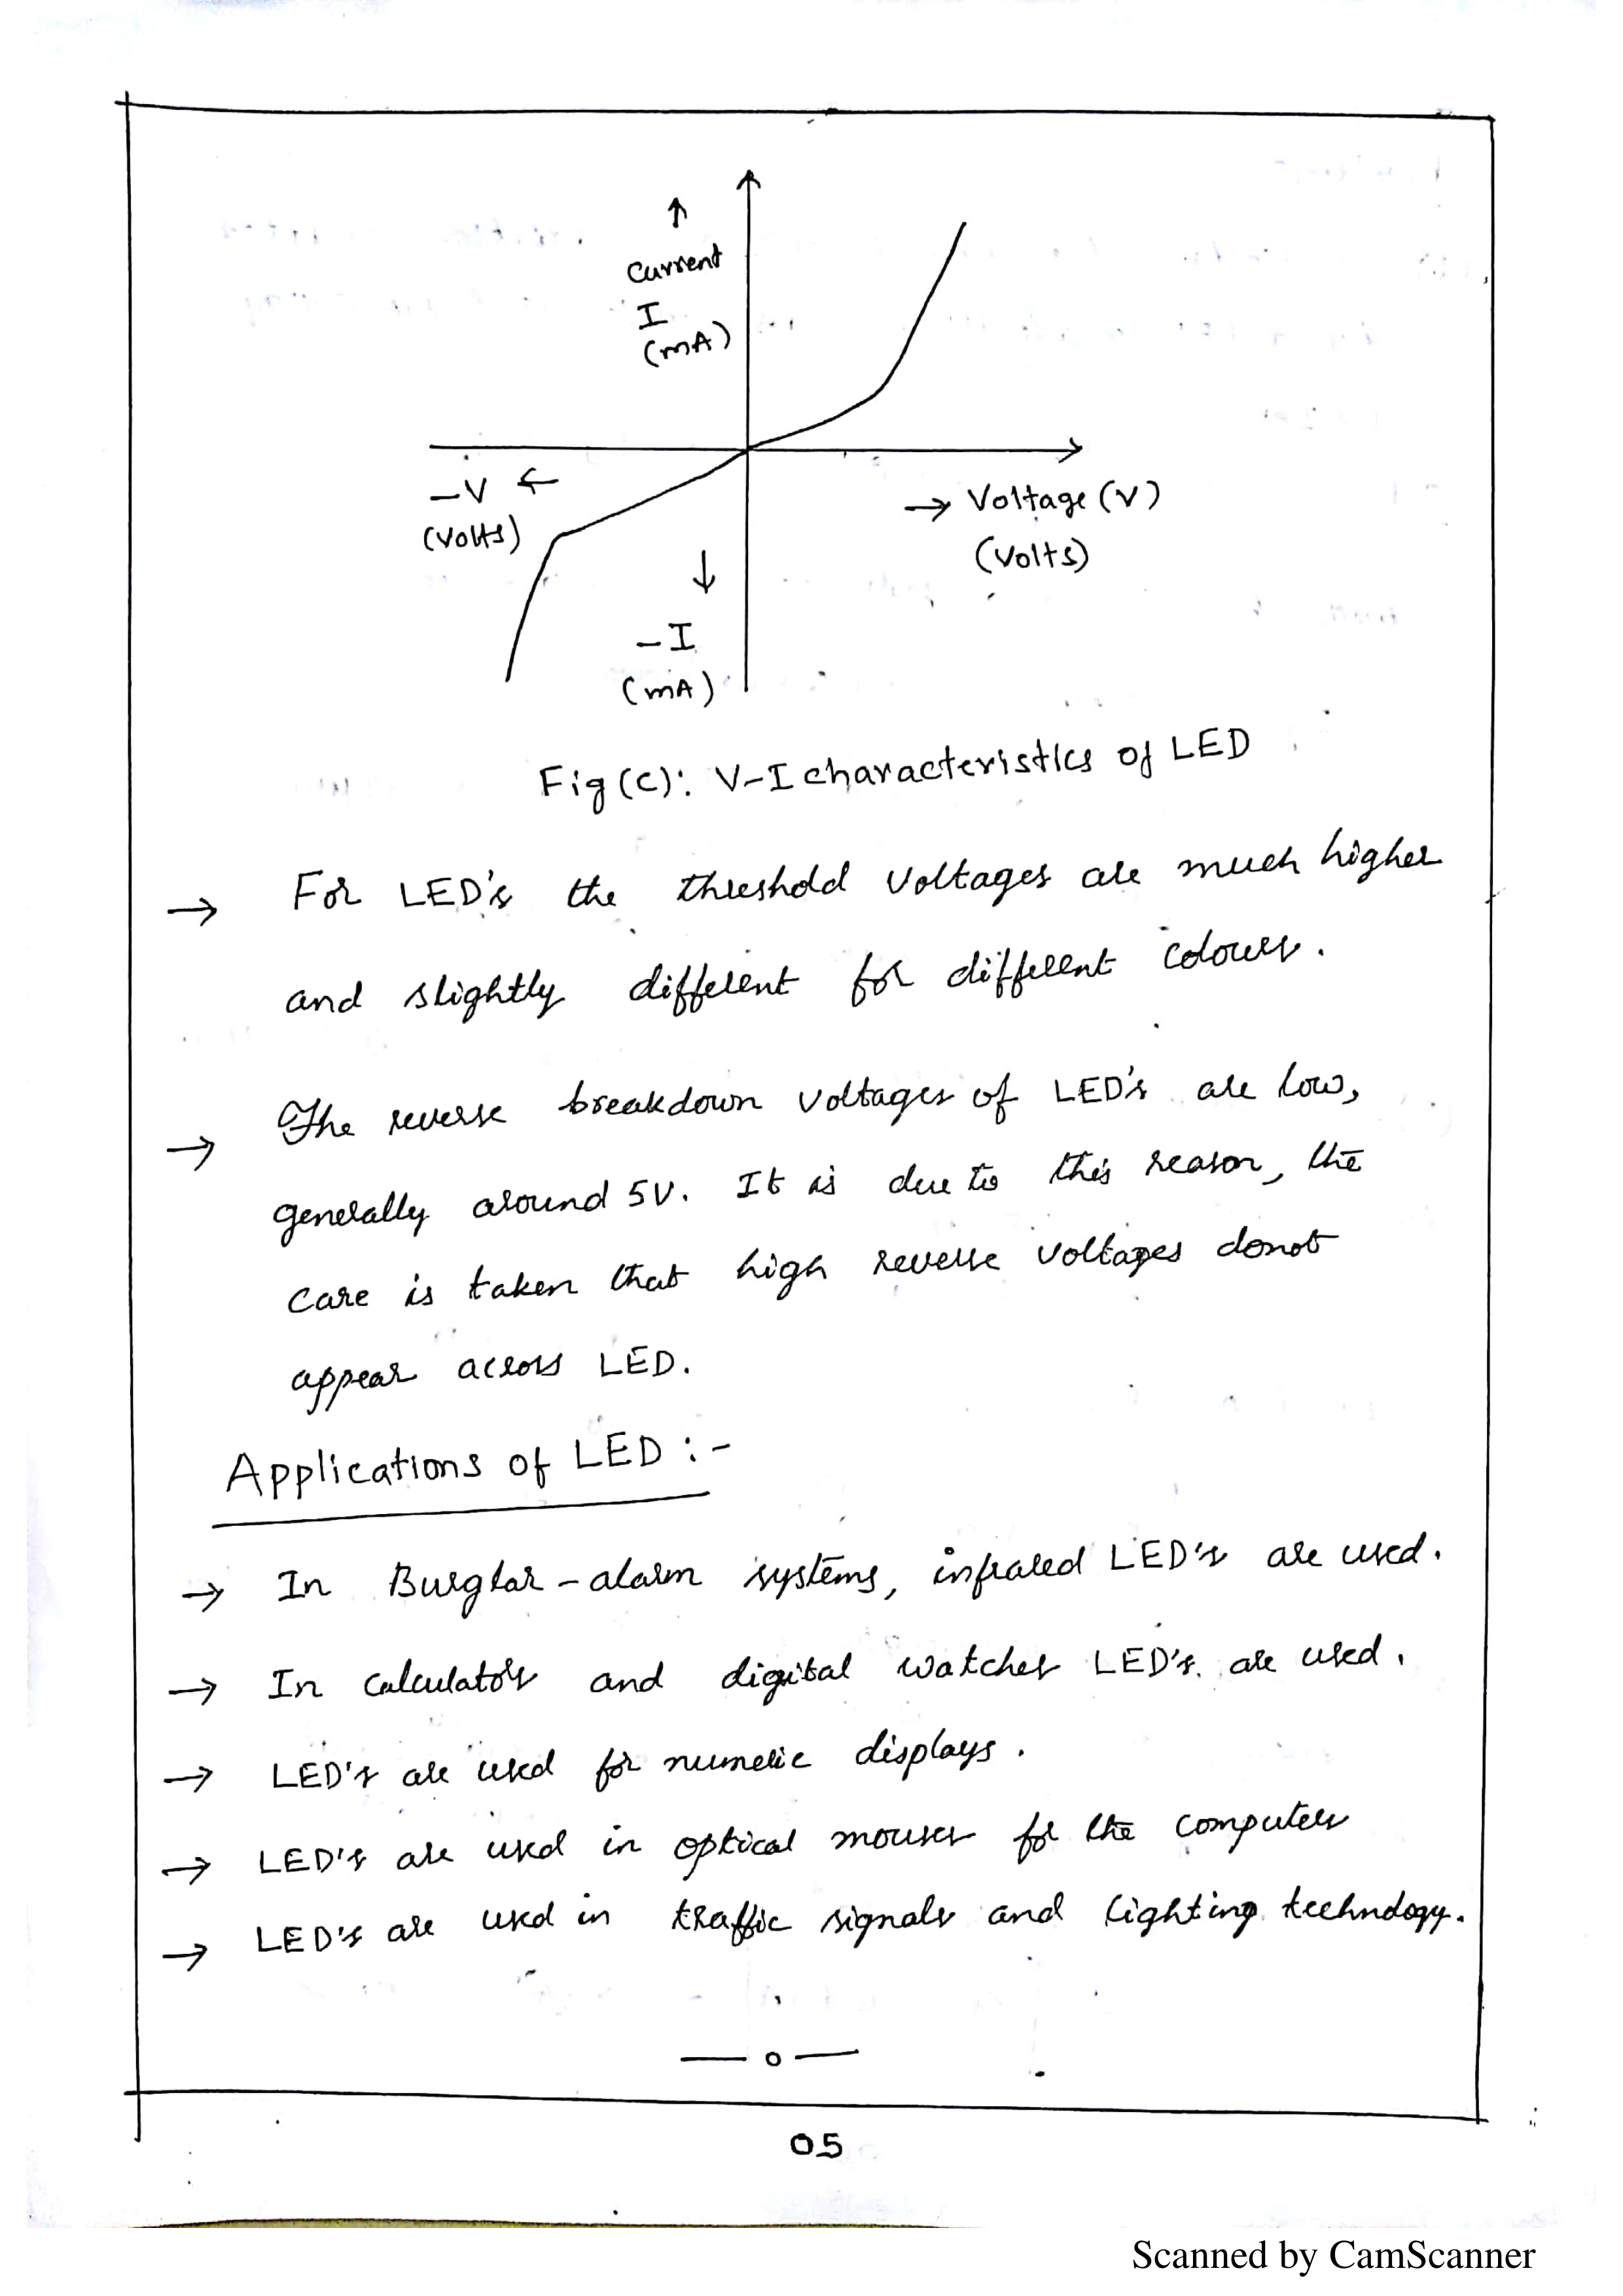 ↑
Current
I
(mA)
-V ←
(Volts)
→ Voltage (V)
(Volts)
↓
-I
(mA)
Fig (C): V-I characteristics of LED
→ For LED's the threshold voltages are much higher
and slightly different for different colours.
→ The reverse breakdown voltages of LED's are low,
generally around 5V. It is due to this reason, the
care is taken that high reverse voltages donot
appear across LED.
Applications of LED :-
→ In Burglar-alarm systems, infrared LED's are used.
→ In calculators and digital watches LED's are used.
→ LED's are used for numeric displays.
→ LED's are used in optical mouses for the computers
→ LED's are used in traffic signals and lighting technology.
—o—
05
Scanned by CamScanner